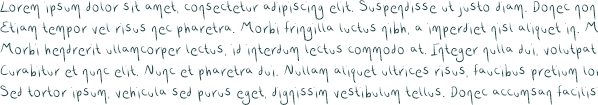 Lorem ipsum dolor sit amet, consectetur adipiscing elit. Suspendisse ut justo diam. Donec non
Etiam tempor vel risus nec pharetra. Morbi fringilla luctus nibh, a imperdiet nisl aliquet in. M
Morbi hendrerit ullamcorper lectus, id interdum lectus commodo at. Integer nulla dui, volutpat
Curabitur et nunc elit. Nunc et pharetra dui. Nullam aliquet ultrices risus, faucibus pretium lor
Sed tortor ipsum, vehicula sed purus eget, dignissim vestibulum tellus. Donec accumsan facilis